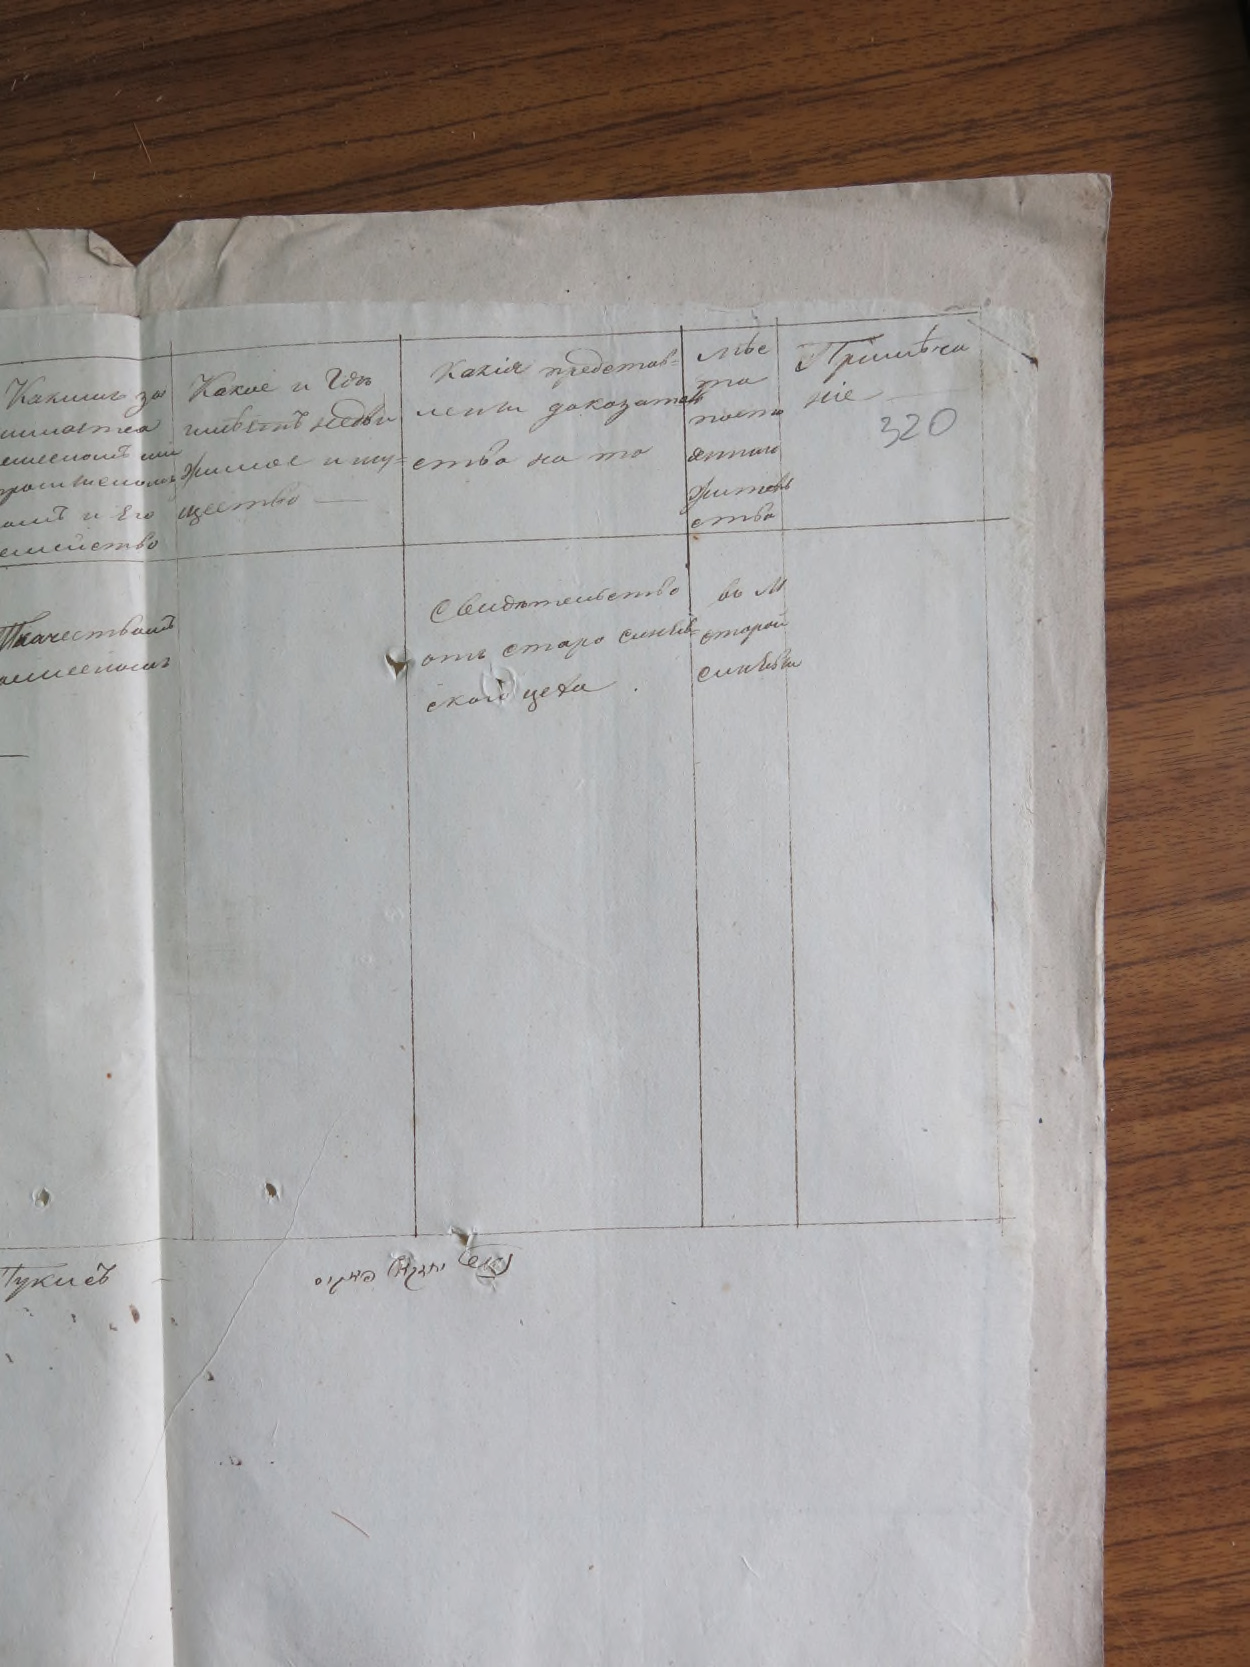 Какимъ за
нимается
емесломъ или
промысломъ
самъ и Его
емейство
Какое и Гдѣ
имѣетъ недви
жимое иму=
щество —
Какія представ=
лены доказатель
ства на то
Мѣс
та
посто
яннаго
житель
ства
Примѣча
ніе
320
Ткачествомъ
омесломъ
Свидѣтельство
отъ старо синяв=
ского цеха.
въ М
старой
синявы
Пукисъ